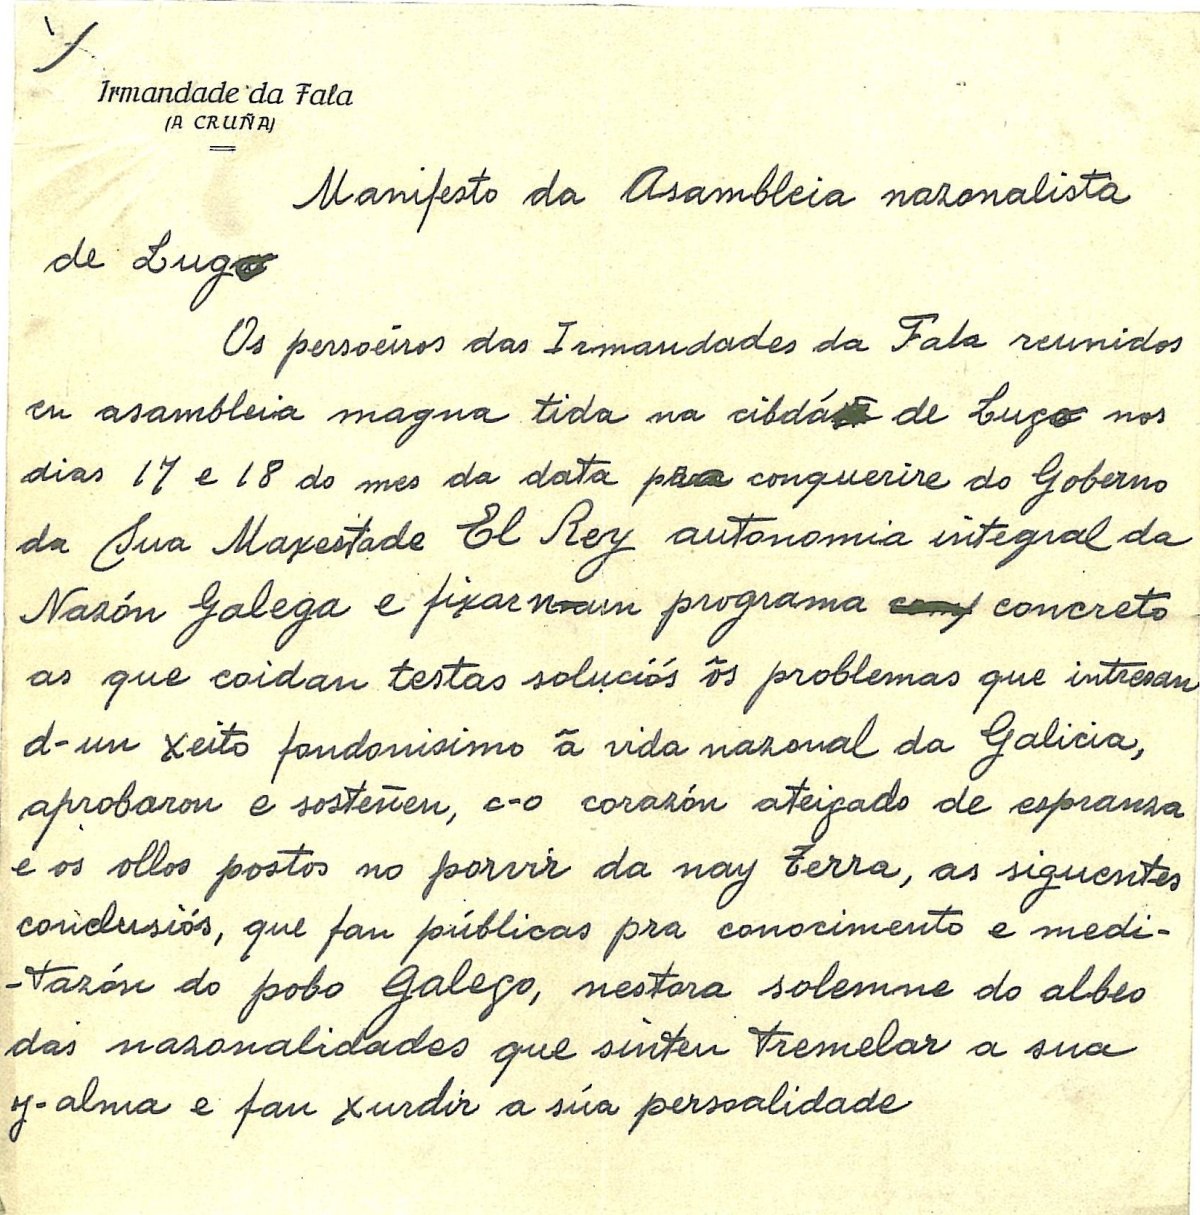 Irmandade da Fala
(A CRUÑA)
Manifesto da Asambleia nazonalista
de Lugo
Os persoeiros das Irmandades da Fala reunidos
en asambleia magna tida na cibdá de Lugo nos
dias 17 e 18 do mes da data pra conquerire do Goberno
da Sua Maxestade El Rey autonomia integral da
Nazón Galega e fixar n-un programa concreto
as que coidan testas soluciós ôs problemas que intresan
d-un xeito fondonisimo â vida nazonal da Galicia,
aprobaron e sosteñen, c-o corazón ateigado de espranza
e os ollos postos no porvir da nay terra, as siguentes
conclusiós, que fan públicas pra conocimento e medi-
-tazón do pobo Galego, nestora solemne do albeo
das nazonalidades que sinten tremelar a sua
y-alma e fan xurdir a súa persoalidade